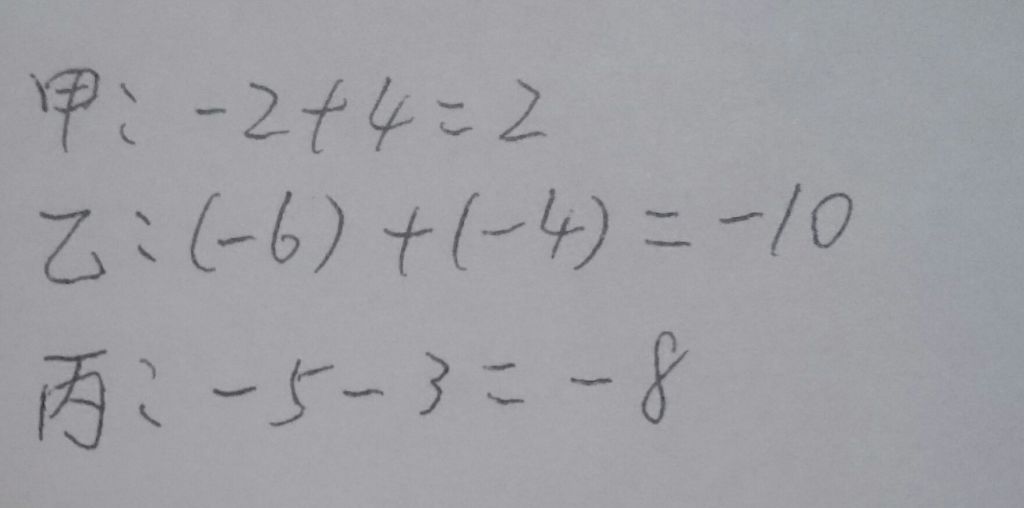 甲: -2+4=2
乙: (-6)+(-4)=-10
丙: -5-3=-8